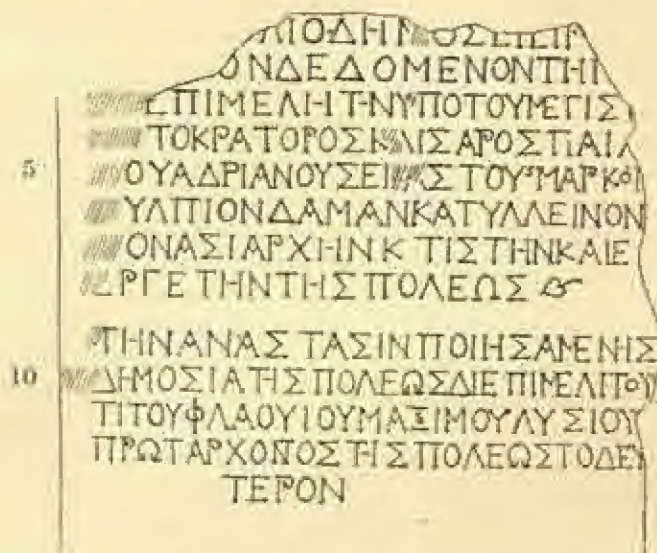 ΙΟΔΗΜ ΟΣ
ΟΝΔΕΔΟΜΕΝΟΝΤΗΙ
ΕΠΙΜΕΛΗΤΗΝΥΠΟΤΟΥΜΕΓΙΣ
5 ΤΟΚΡΑΤΟΡΟΣΚ ΙΣΑΡΟΣΤΡΑΙΑ
ΟΥΑΔΡΙΑΝΟΥΣΕ ΣΤΟΥΜΑΡΚΟ
ΥΛΠΙΟΝΔΑΜΑΝΚΑΤΥΛΛΕΙΝΟΝ
ΟΝΑΣΙΑΡΧΗΝΚΤΙΣΤΗΝΚΑΙΕ
ΕΡΓΕΤΗΝΤΗΣΠΟΛΕΩΣ
ΤΗΝΑΝΑΣΤΑΣΙΝΠΟΙΗΣΑΜΕΝΗΣ
10 ΔΗΜΟΣΙΑΤΗΣΠΟΛΕΩΣΔΙΕΠΙΜΕΛΙΤΟΥ
ΤΙΤΟΥΦΛΑΟΥΙΟΥΜΑΞΙΜΟΥΛΥΣΙΟΥ
ΠΡΩΤΑΡΧΟΝΤΟΣΤΗΣΠΟΛΕΩΣΤΟΔΕΥ
ΤΕΡΟΝ